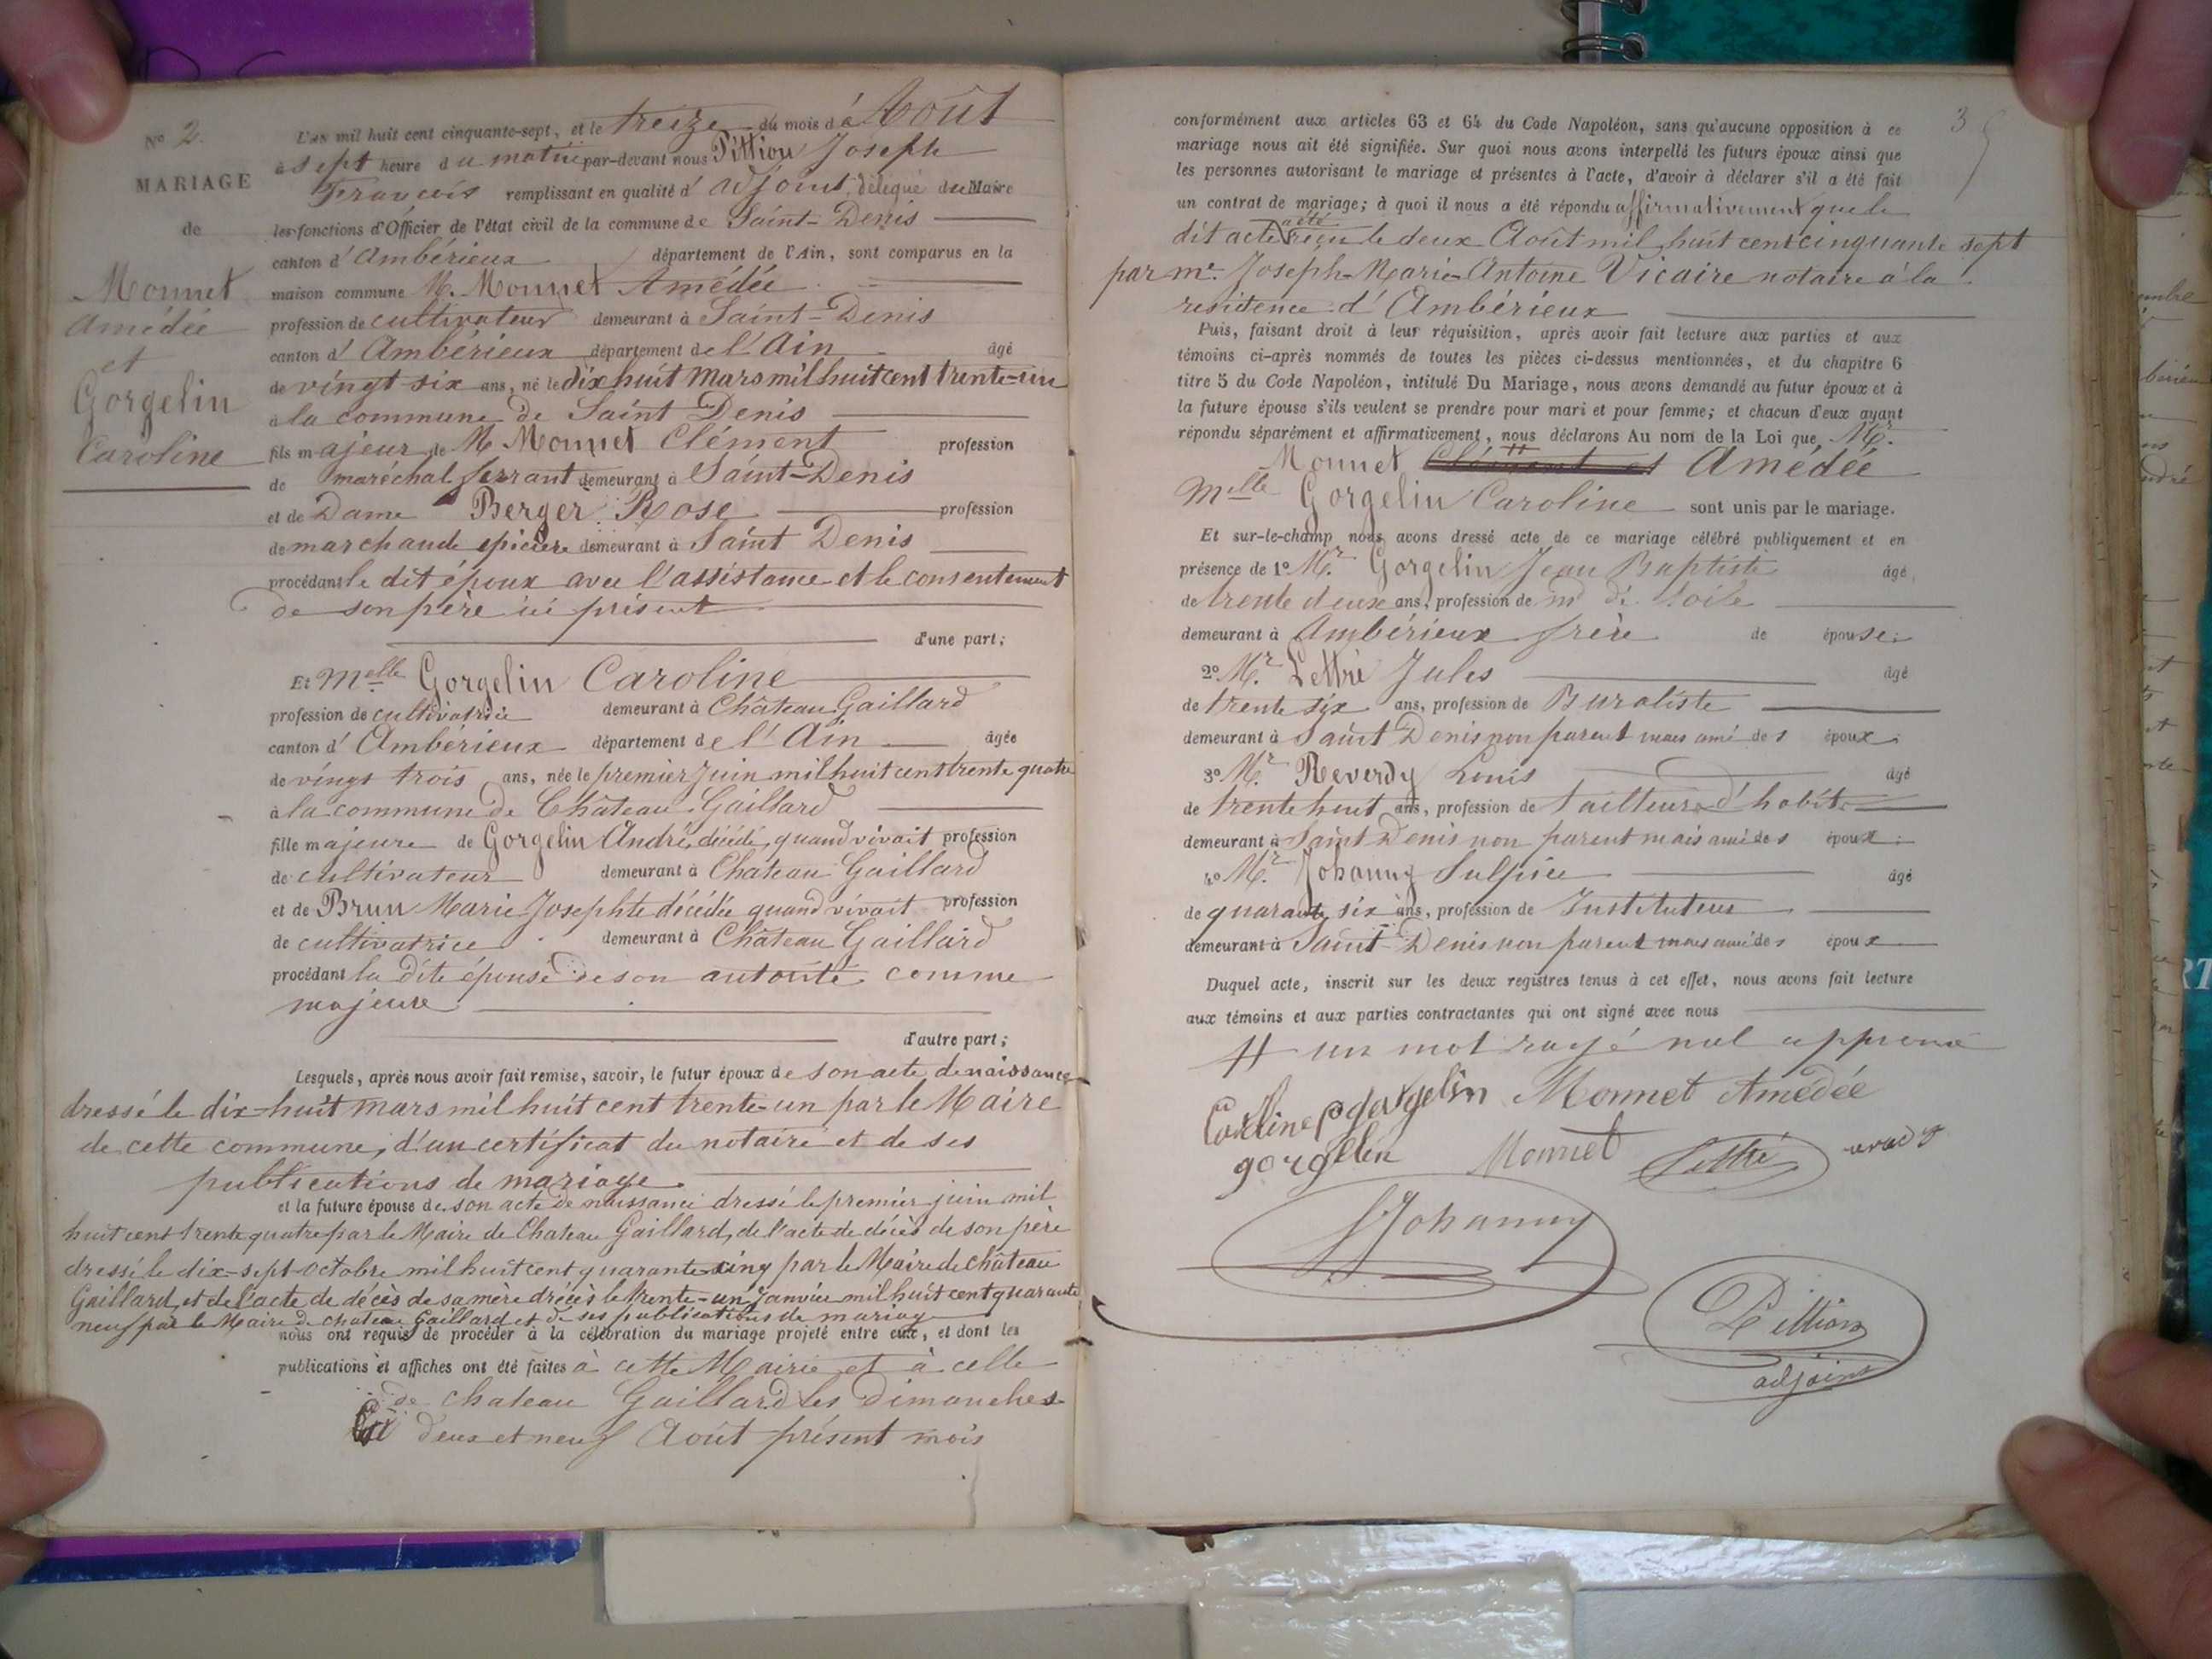 Nº 2.
MARIAGE
de
Monnet
Amédée
et
Gorgelin
Caroline
L'an mil huit cent cinquante-sept, et le treize du mois d'Août
à sept heure du matin par-devant nous Pittion Joseph
François remplissant en qualité d'adjoint délégué du Maire
les fonctions d'Officier de l'état civil de la commune de Saint-Denis
canton d'Ambérieux département de l'Ain, sont comparus en la
maison commune M. Monnet Amédée
profession de cultivateur demeurant à Saint-Denis
canton d'Ambérieux département de l'Ain âgé
de vingt-six ans, né le dix huit Mars mil huit cent trente-un
à la commune de Saint Denis
fils majeur de M. Monnet Clément profession
de maréchal ferrant demeurant à Saint-Denis
et de Dame Berger Rose profession
de marchande epiciere demeurant à Saint Denis
procédant le dit époux avec l'assistance et le consentement
de son père ici présent
d'une part;
Et Melle Gorgelin Caroline
profession de cultivatrice demeurant à Château Gaillard
canton d'Ambérieux département de l'Ain âgée
de vingt trois ans, née le premier Juin mil huit cent trente quatre
à la commune de Château Gaillard
fille majeure de Gorgelin André, décédé, quand vivait profession
de cultivateur demeurant à Chateau Gaillard
et de Brun Marie Josephte décédée quand vivait profession
de cultivatrice demeurant à Château Gaillard
procédant la dite épouse de son autorité comme
majeure
d'autre part;
Lesquels, après nous avoir fait remise, savoir, le futur époux de son acte de naissance
dressé le dix-huit mars mil huit cent trente-un par le Maire
de cette commune, d'un certificat du notaire et de ses
publications de mariage
et la future épouse de son acte de naissance dressé le premier juin mil
huit cent trente quatre par le Maire de Chateau Gaillard, de l'acte de décès de son père
dressé le dix-sept octobre mil huit cent quarante cinq par le Maire de château
Gaillard, et de l'acte de décès de sa mere le trente-un Janvier mil huit cent quarante
neuf par le Maire de chateau Gaillard et de ses publications de mariage
nous ont requis de procéder à la célébration du mariage projeté entre eux, et dont les
publications et affiches ont été faites à cette Mairie et à celle
de chateau Gaillard les Dimanches
deux et neuf Août présent mois
3
conformément aux articles 63 et 64 du Code Napoléon, sans qu'aucune opposition à ce
mariage nous ait été signifiée. Sur quoi nous avons interpellé les futurs époux ainsi que
les personnes autorisant le mariage et présentes à l'acte, d'avoir à déclarer s'il a été fait
un contrat de mariage; à quoi il nous a été répondu affirmativement que le
dit acte a été reçu le deux Août mil huit cent cinquante sept
par me. Joseph-Marie-Antoine Vicaire notaire à la
residence d'Ambérieux
Puis, faisant droit à leur réquisition, après avoir fait lecture aux parties et aux
témoins ci-après nommés de toutes les pièces ci-dessus mentionnées, et du chapitre 6
titre 5 du Code Napoléon, intitulé Du Mariage, nous avons demandé au futur époux et à
la future épouse s'ils veulent se prendre pour mari et pour femme; et chacun d'eux ayant
répondu séparément et affirmativement, nous déclarons Au nom de la Loi que Mr.
Monnet Amédée
Melle Gorgelin Caroline sont unis par le mariage.
Et sur-le-champ nous avons dressé acte de ce mariage célébré publiquement et en
présence de 1º Mr. Gorgelin Jean Baptiste âgé
de trente deux ans, profession de md de toile
demeurant à Ambérieux frère de épouse;
2º Mr. Lettré Jules âgé
de trente six ans, profession de Buraliste
demeurant à Saint Denis non parent mais ami des époux;
3º Mr. Reverdy Louis âgé
de trente huit ans, profession de tailleur d'habit
demeurant à Saint Denis non parent mais ami des époux;
4º Mr. Johanny Sulpice âgé
de quarante six ans, profession de Instituteur
demeurant à Saint-Denis non parent mais ami des époux
Duquel acte, inscrit sur les deux registres tenus à cet effet, nous avons fait lecture
aux témoins et aux parties contractantes qui ont signé avec nous
H un mot rayé nul approuvé
Caroline gorgelin Monnet Amédée
gorgelin Monnet Lettré
SJohanny
Pittion
adjoint